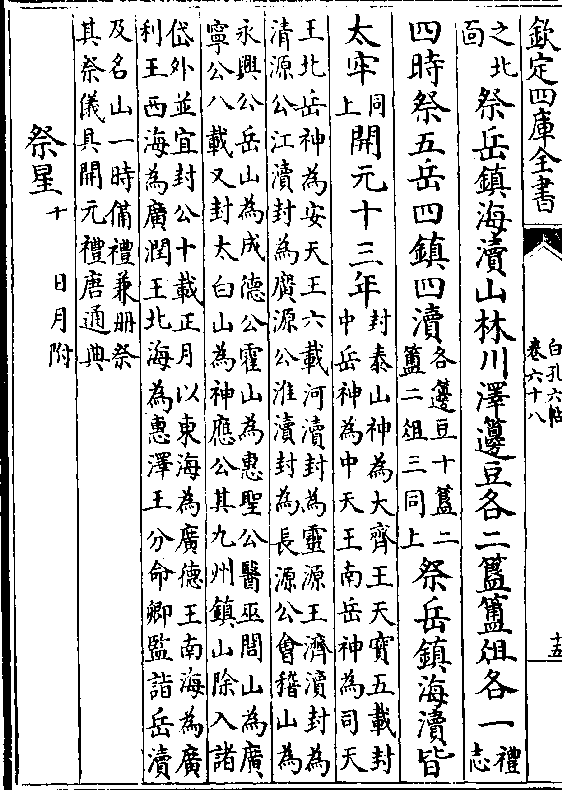 欽定四庫全書
白孔六帖
卷六十八
十五
之北面祭岳鎮海瀆山林川澤籩豆各二簋簠俎各一禮志
四時祭五岳四鎮四瀆各籩豆十簋二簠二俎三同上祭岳鎮海瀆皆
太牢同上開元十三年封泰山神為大齊王天寶五載封中岳神為中天王南岳神為司天
王北岳神為安天王六載河瀆封為靈源王濟瀆封為
清源公江瀆封為廣源公淮瀆封為長源公會稽山為
永興公岳山為成德公霍山為惠聖公醫巫閭山為廣
寧公八載又封太白山為神應公其九州鎮山除入諸
岱外並宜封公十載正月以東海為廣德王南海為廣
利王西海為廣潤王北海為惠澤王分命卿監詣岳瀆
及名山一時備禮兼冊祭
其祭儀具開元禮唐通典
祭星十 日月附